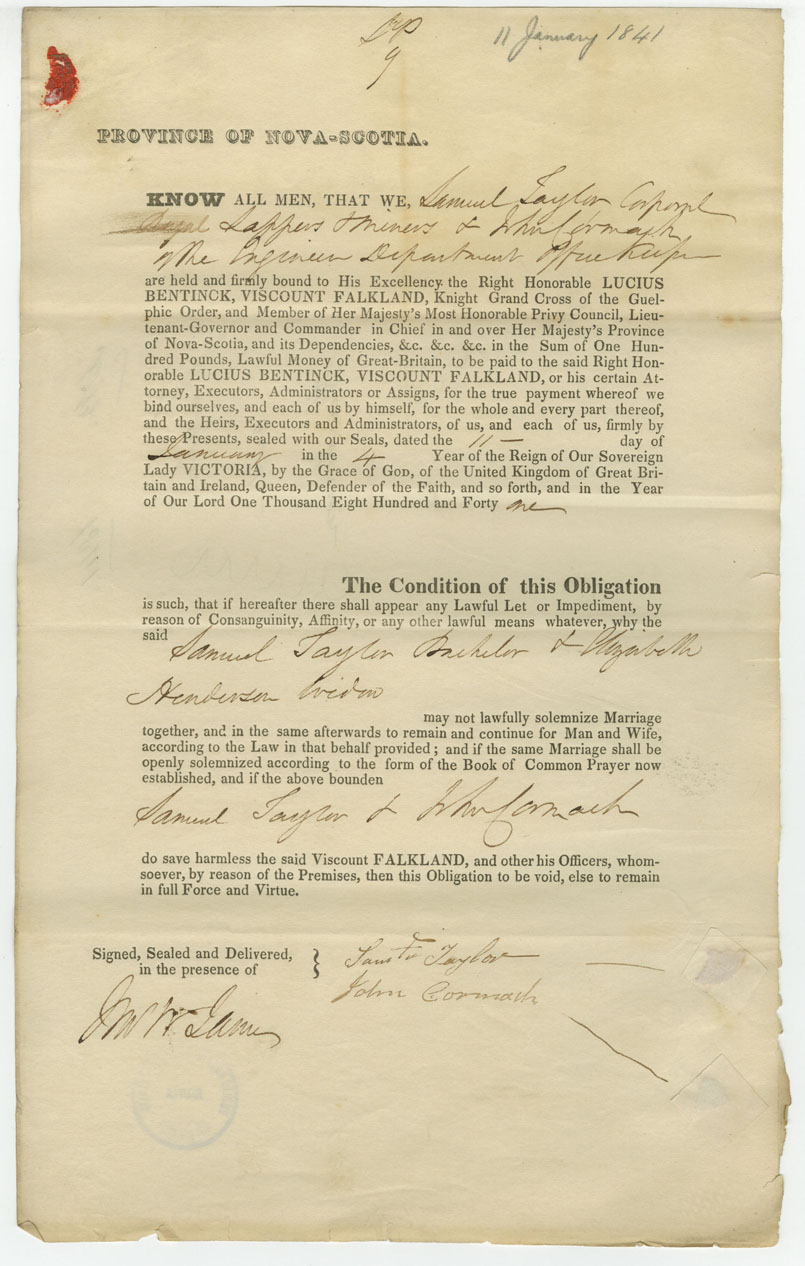 9
11 January 1841
PROVINCE OF NOVA-SCOTIA.
KNOW ALL MEN, THAT WE, Samuel Taylor Corporal
Royal Sappers & Miners & John Cormack
of the Engineer Department Office Keeper
are held and firmly bound to His Excellency the Right Honorable LUCIUS
BENTINCK, VISCOUNT FALKLAND, Knight Grand Cross of the Guel-
phic Order, and Member of Her Majesty's Most Honorable Privy Council, Lieu-
tenant-Governor and Commander in Chief in and over Her Majesty's Province
of Nova-Scotia, and its Dependencies, &c. &c. &c. in the Sum of One Hun-
dred Pounds, Lawful Money of Great-Britain, to be paid to the said Right Hon-
orable LUCIUS BENTINCK, VISCOUNT FALKLAND, or his certain At-
torney, Executors, Administrators or Assigns, for the true payment whereof we
bind ourselves, and each of us by himself, for the whole and every part thereof,
and the Heirs, Executors and Administrators, of us, and each of us, firmly by
these Presents, sealed with our Seals, dated the 11 — day of
January in the 4 Year of the Reign of Our Sovereign
Lady VICTORIA, by the Grace of GOD, of the United Kingdom of Great Bri-
tain and Ireland, Queen, Defender of the Faith, and so forth, and in the Year
of Our Lord One Thousand Eight Hundred and Forty one
The Condition of this Obligation
is such, that if hereafter there shall appear any Lawful Let or Impediment, by
reason of Consanguinity, Affinity, or any other lawful means whatever, why the
said
Samuel Taylor Bachelor & Elizabeth
Henderson Widow
may not lawfully solemnize Marriage
together, and in the same afterwards to remain and continue for Man and Wife,
according to the Law in that behalf provided; and if the same Marriage shall be
openly solemnized according to the form of the Book of Common Prayer now
established, and if the above bounden
Samuel Taylor & John Cormack
do save harmless the said Viscount FALKLAND, and other his Officers, whom-
soever, by reason of the Premises, then this Obligation to be void, else to remain
in full Force and Virtue.
Signed, Sealed and Delivered,
in the presence of
Taylor
John Cormack
James